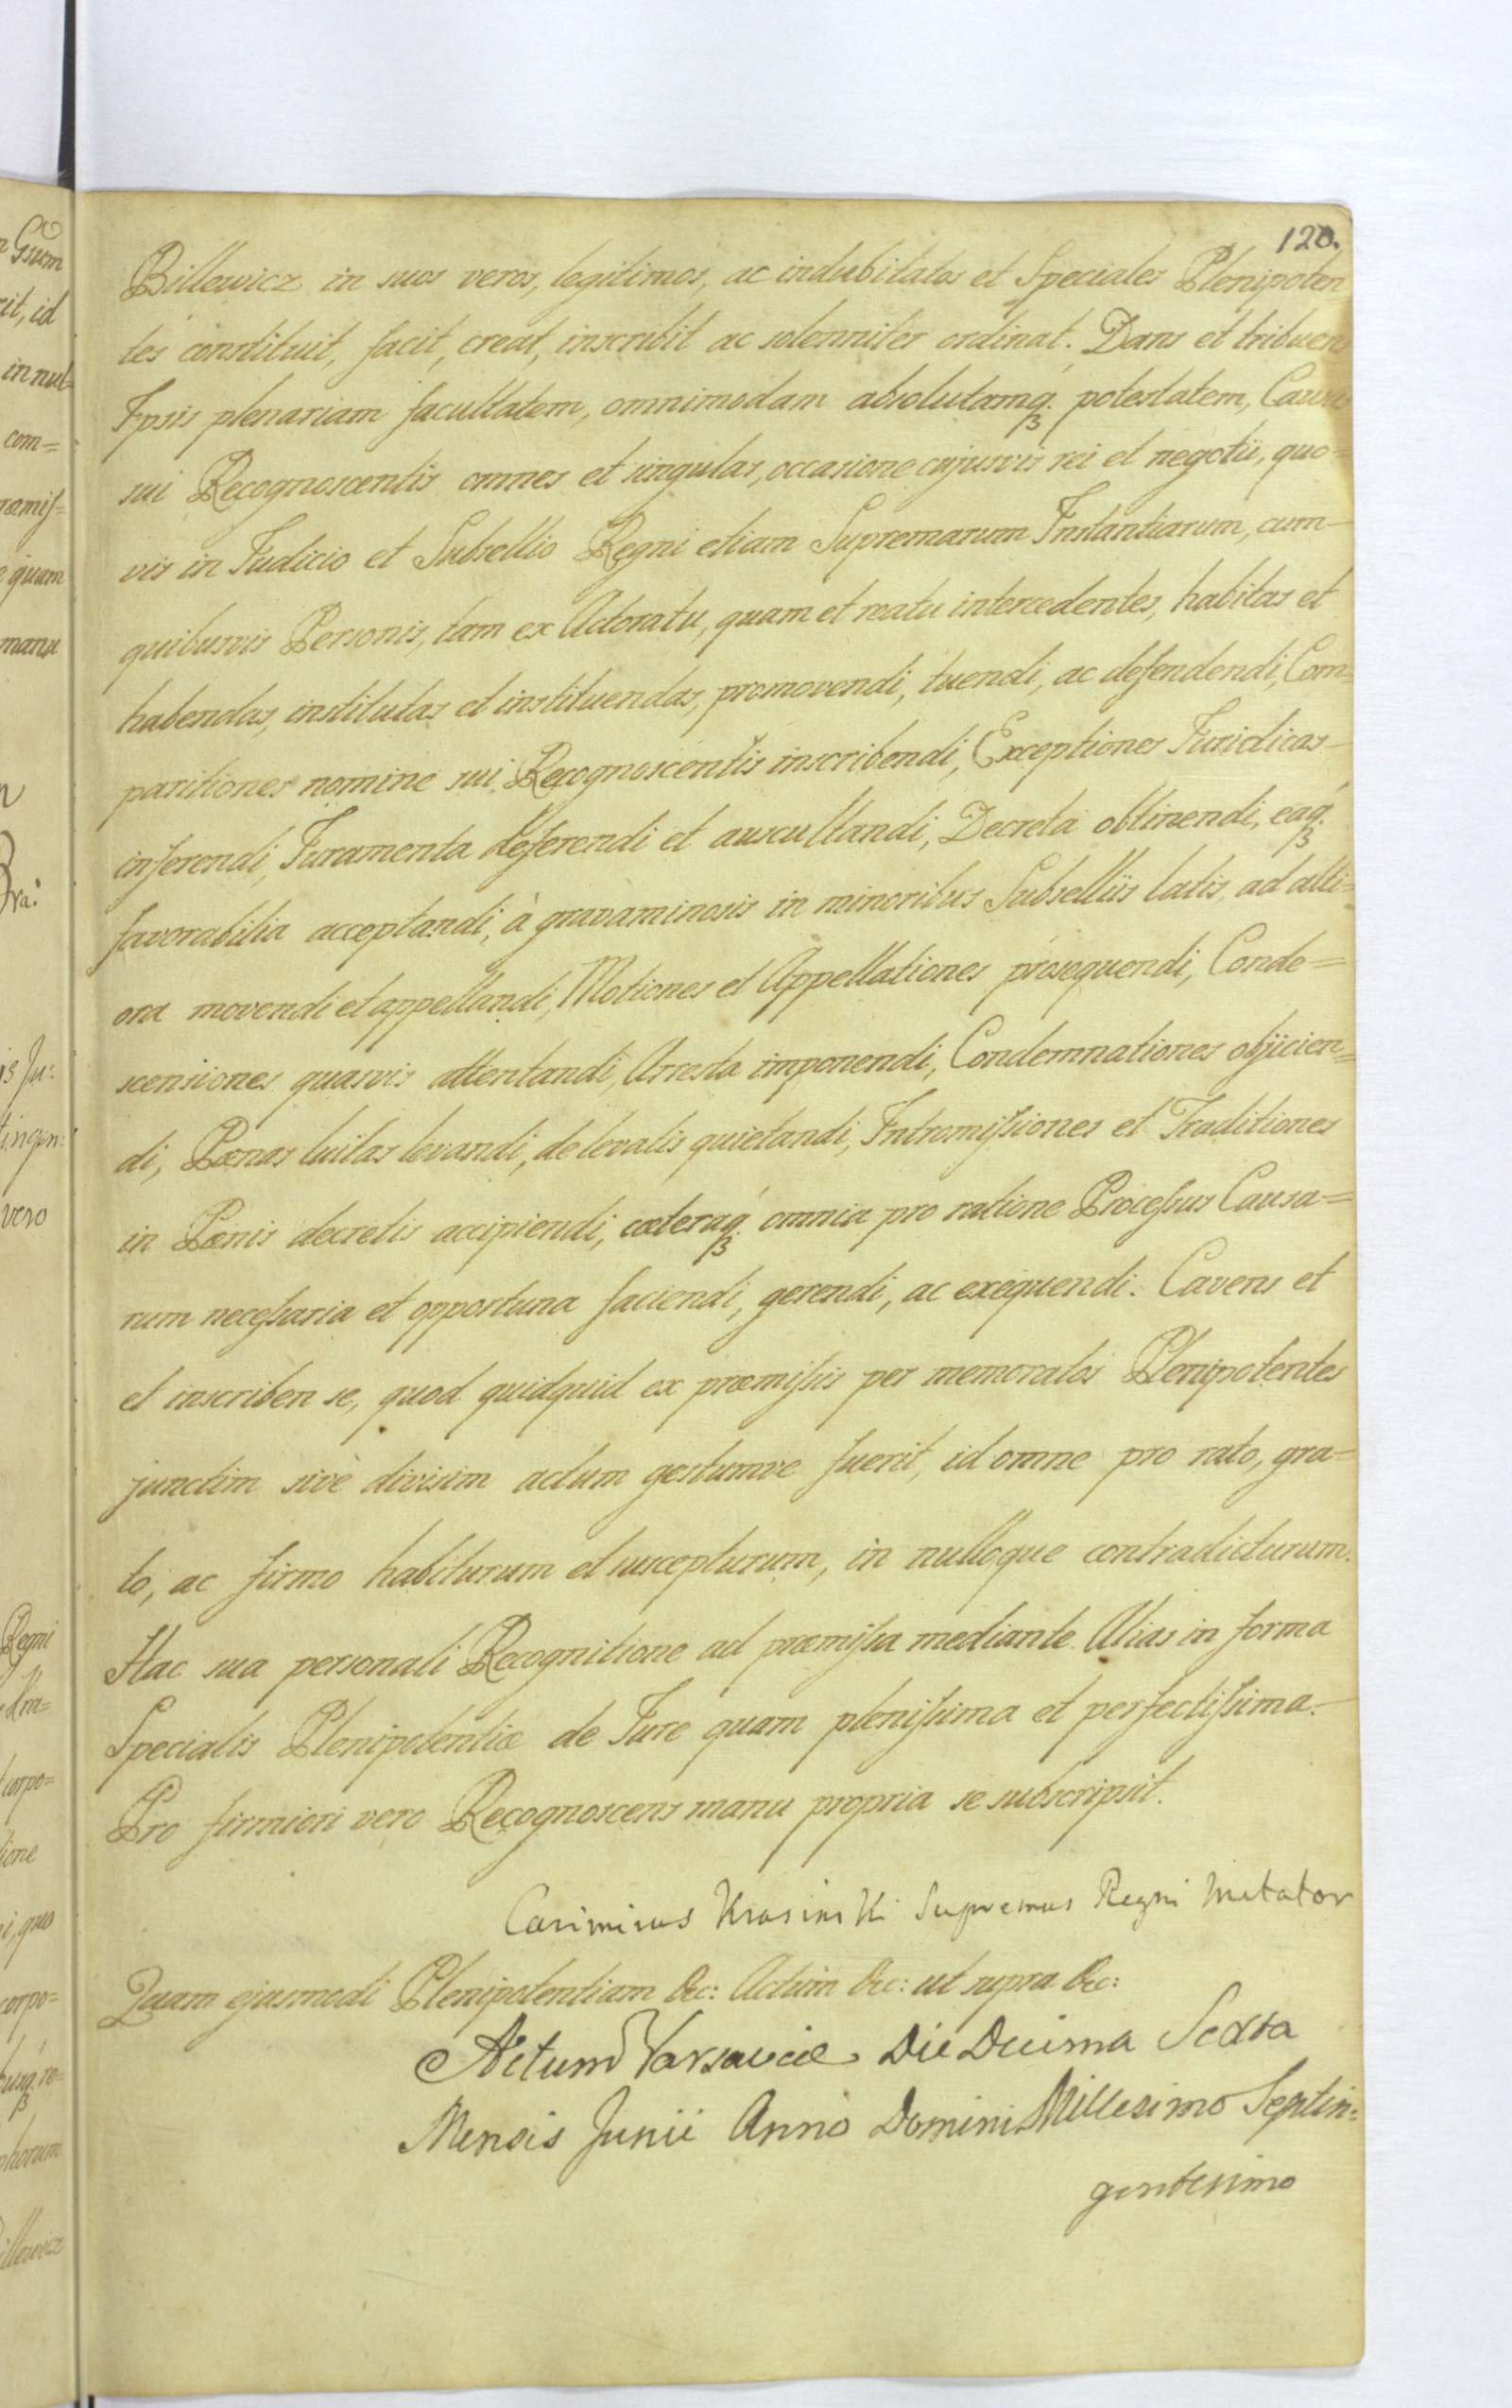 120.
Billewicz in suos veros, legitimos, ac indubitatos et Speciales Plenipoten
tes constituit, facit, creat, inscribit ac solenniter ordinat. Dans et tribuens
Ipsis plenariam facultatem, omnimodam absolutamqꝫ potestatem, Causas
sui Recognoscentis omnes et singulas, occasione cujusvis rei et negotii, quo=
vis in Judicio et Subsellio Regni etiam Supremarum Instantiarum, cum
quibusvis Personis, tam ex Actoratu, quam et reatu intercedentes, habitas et
habendas, institutas et instituendas, promovendi, tuendi, ac defendendi, Com=
paritiones nomine sui Recognoscentis inscribendi, Exceptiones Juridicas
inferendi, Juramenta deferendi et auscultandi, Decreta obtinendi, eaqꝫ
favorabilia acceptandi, à gravaminosis in minoribus Subselliis latis, ad alti=
ora movendi et appellandi, Motiones et Appellationes prosequendi, Conde=
scensiones quasvis attentandi, Arresta imponendi, Condemnationes objicien=
di, Pœnas luitas levandi, de levatis quietandi, Intromissiones et Traditiones
in Pœnis decretis accipiendi, cæteraqꝫ omnia pro ratione Processus Causa=
rum necessaria et opportuna faciendi, gerendi, ac exequendi. Cavens et
et inscriben se, quod quidquid ex præmissis per memoratos Plenipotentes
junctim sivè divisim actum gestumve fuerit, id omne pro rato, gra=
to, ac firmo habiturum et suscepturum, in nulloque contradicturum.
Hac sua personali Recognitione ad præmissa mediante. Alias in forma
Specialis Plenipotentiæ de Jure quam plenissima et perfectissima.
Pro firmiori vero Recognoscens manu propria se subscripsit.
Casimirus Krasinski Supremus Regni Metator
Quam ejusmodi Plenipotentiam &c: Actum &c: ut supra &c:
Actum Varsaviæ Die Decima Sexta
Mensis Junii Anno Domini Millesimo Septin=
gentesimo